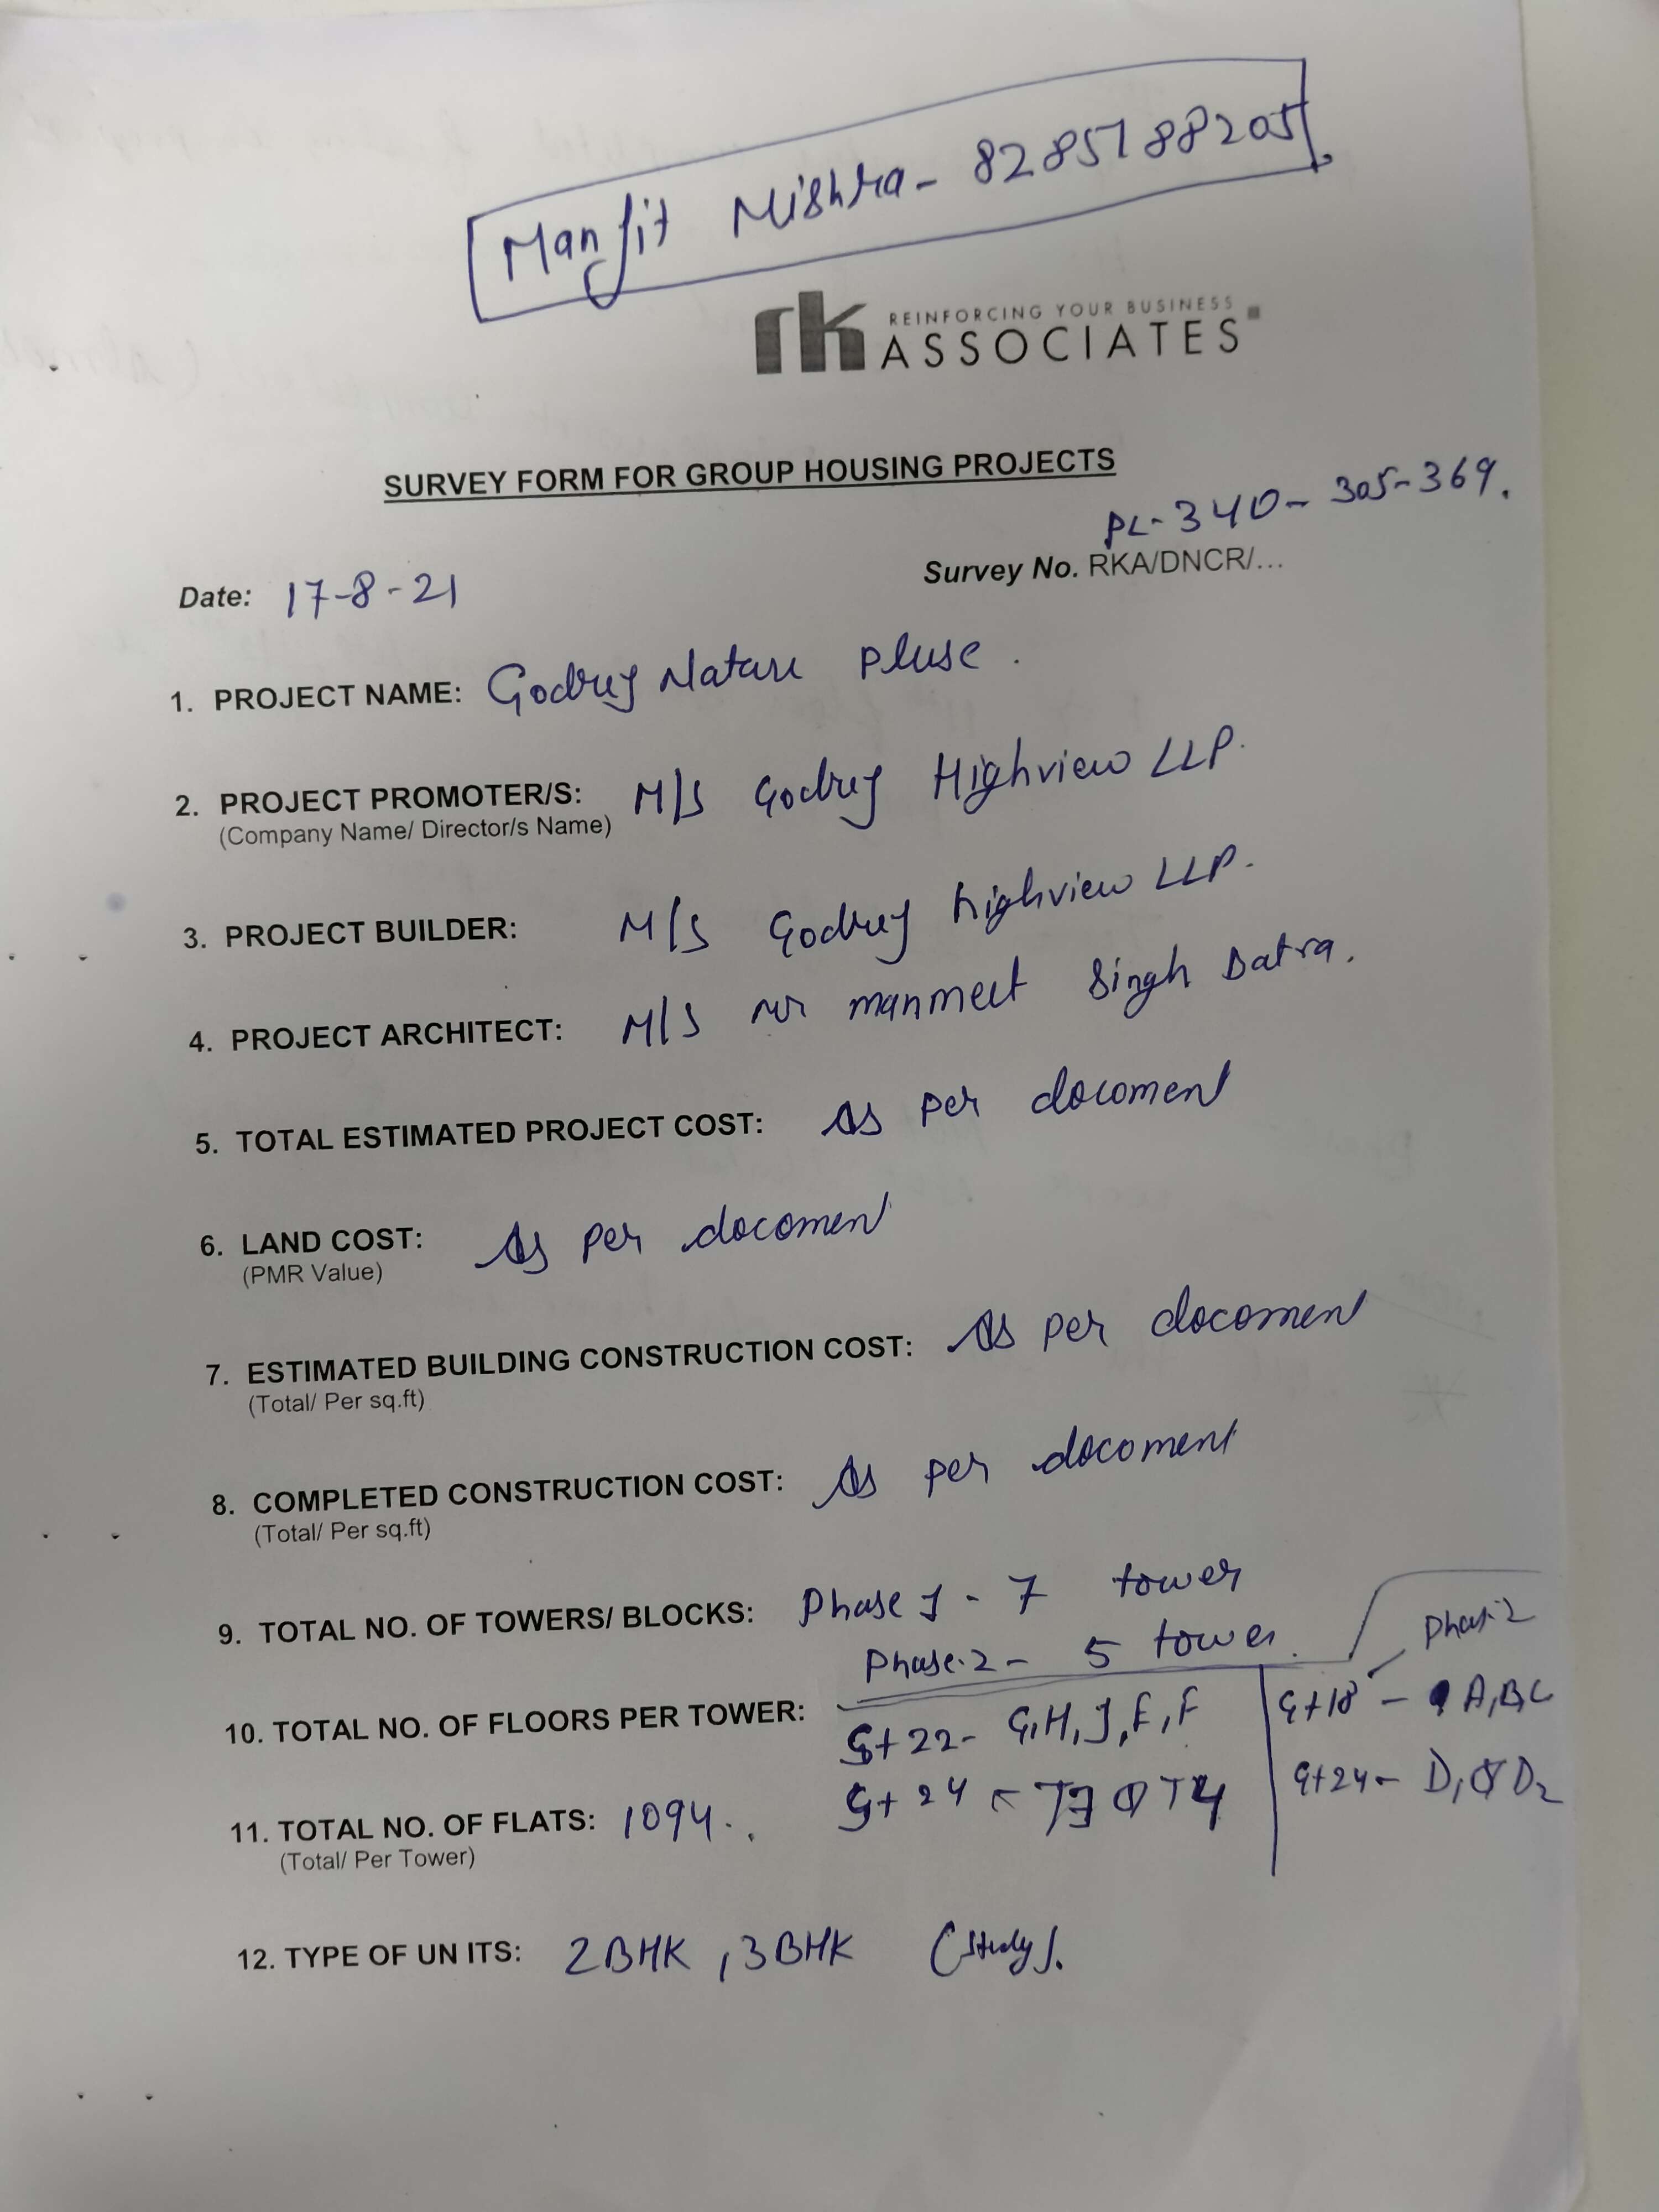 Manjit Mishra - 8285188205
rk REINFORCING YOUR BUSINESS
ASSOCIATES
SURVEY FORM FOR GROUP HOUSING PROJECTS
PL- 340 - 305-369.
Survey No. RKA/DNCR/...
Date: 17-8-21
1. PROJECT NAME: Godrej Nature Pluse.
2. PROJECT PROMOTER/S: M/S Godrej Highview LLP.
(Company Name/ Director/s Name)
3. PROJECT BUILDER: M/S Godrej highview LLP.
4. PROJECT ARCHITECT: M/S mr manmeet Singh Batra.
5. TOTAL ESTIMATED PROJECT COST: As per docoment
6. LAND COST: As per docoment
(PMR Value)
7. ESTIMATED BUILDING CONSTRUCTION COST: As per docoment
(Total/ Per sq.ft)
8. COMPLETED CONSTRUCTION COST: As per docoment
(Total/ Per sq.ft)
9. TOTAL NO. OF TOWERS/ BLOCKS: Phase 1 - 7 tower
Phase.2 - 5 tower. Phase-2
10. TOTAL NO. OF FLOORS PER TOWER: G+22- G,H,J,E,F G+18 - A,B,C
G+24 - T3 T4 G+24 - D, D2
11. TOTAL NO. OF FLATS: 1094.
(Total/ Per Tower)
12. TYPE OF UN ITS: 2BHK, 3BHK (study).